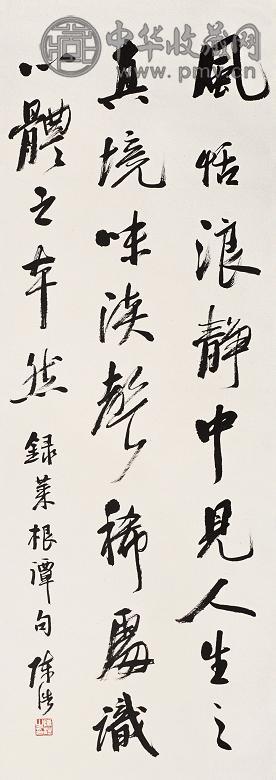 中华收藏网
www.pmx.cn
風恬浪靜中見人生之
真境味淡聲稀處識
心體之本然
錄菜根譚句 陳浩